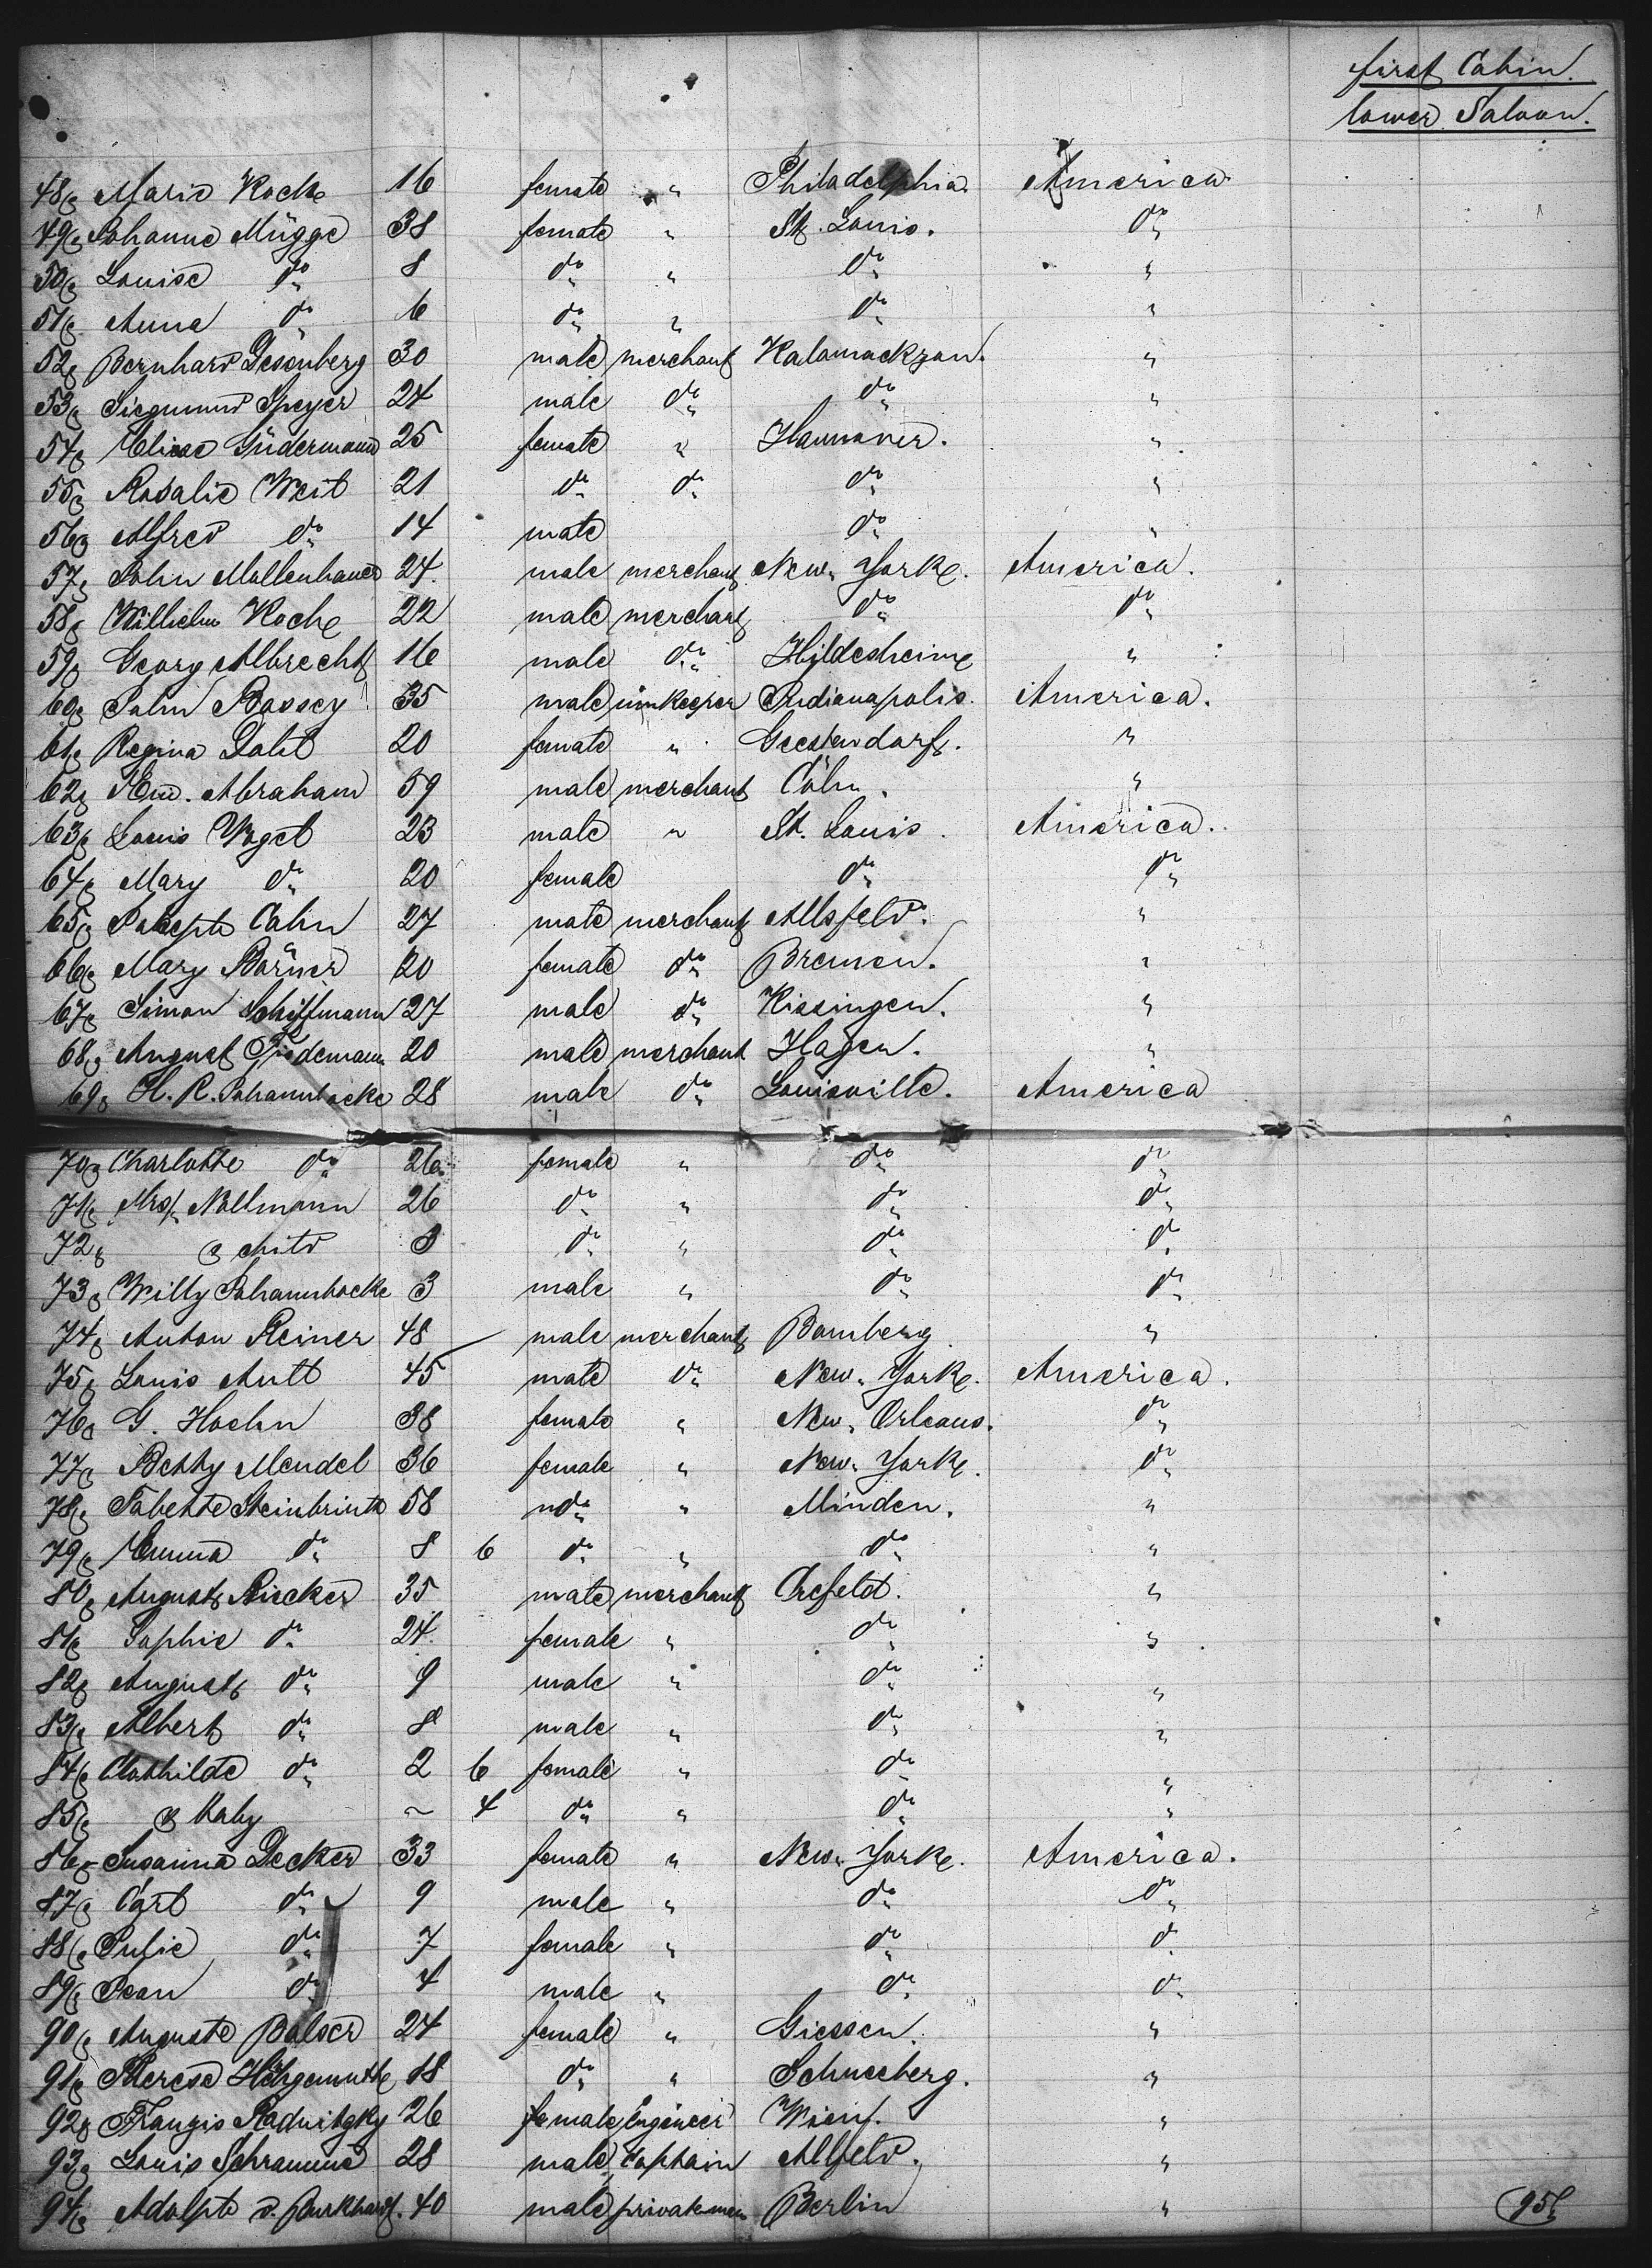 first Cabin.
lower Saloon.
48, Marie Koch 16 female " Philadelphia America
49, Johanne Mügge 38 female " St. Louis. do
50, Louise do 8 do " do "
51, Anna do 6 do " do "
52, Bernhard Desenberg 30 male merchant Kalamackzou. "
53, Siegmund Speyer 24 male do do "
54, Elisse Südermann 25 female " Hannover. "
55, Rosalie Weil 21 do do do "
56, Alfred do 14 male do "
57, John Mollenhauer 24 male merchant New-York. America.
58, Wilhelm Koch 22 male merchant do do
59, Georg Albrecht 16 male do Hildesheim "
60, John Bossey 35 male innkeeper Indianapolis. America.
61, Regina Dahl 20 female " Geestendorf. "
62, Em. Abraham 59 male merchant Cöln. "
63, Louis Vogel 23 male " St. Louis. America.
64, Mary do 20 female do do
65, Joseph Cahn 27 male merchant Allsfeld. "
66, Mary Börner 20 female do Bremen. "
67, Simon Schiffmann 27 male do Kissingen. "
68, August Tiedemann 20 male merchant Hagen. "
69, H. R. Johannbocke 28 male do Louisville. America
70, Charlotte do 26 female " do do
71, Mrs. Nollmann 26 do " do do
72, & child 3 do " do do
73, Willy Johannbocke 3 male " do do
74, Anton Reiner 48 male merchant Bamberg. "
75, Louis Ault 45 male do New-York. America.
76, G. Hoehn 38 female " New-Orleans. do
77, Betty Mendel 36 female " New-York. do
78, Babette Steinbrink 58 do " Minden. "
79, Emma do 8 6 do " do "
80, August Riecker 35 male merchant Crefeld. "
81, Sophie do 24 female " do "
82, August do 9 male " do "
83, Albert do 8 male " do "
84, Clothilde do 2 6 female " do "
85, & Baby ~ 4 do " do "
86, Susanna Decker 33 female " New-York. America.
87, Carl do 9 male " do do
88, Julie do 7 female " do do
89, Jean do 4 male " do do
90, Auguste Balser 24 female " Giessen. "
91, Therese 18 do " Schneeberg. "
92, Franzis Radnitzky 26 female Engineer Wien. "
93, Louis Schramme 28 male Captain Allfeld. "
94, Adolph v. Burkhard. 40 male privateman Berlin "
95